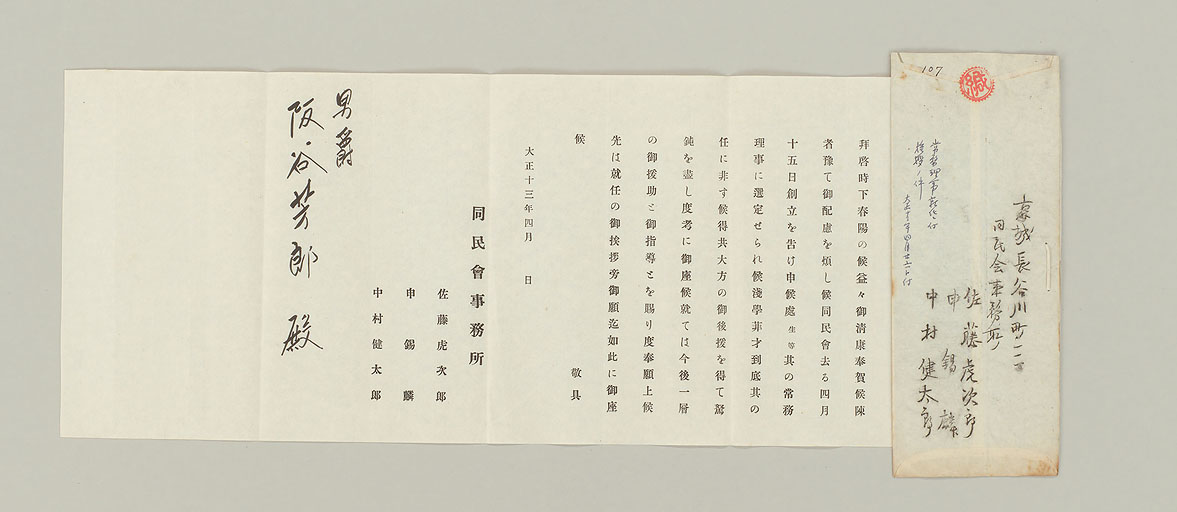 107
緘
京城長谷川町一一三
同民会事務所
佐藤虎次郎
申錫麟
中村健太郎
拜啓時下春陽の候益々御淸康奉賀候陳
者豫て御配慮を煩し候同民會去る四月
十五日創立を吿け申候處生等其の常務
理事に選定せられ候淺學菲才到底其の
任に非す候得共大方の御後援を得て駑
鈍を盡し度考に御座候就ては今後一層
の御援助と御指導とを賜り度奉願上候
先は就任の御挨拶旁御願迄如此に御座
候　敬具
大正十三年四月　日
同民會事務所
佐藤虎次郎
申錫麟
中村健太郎
男爵
阪谷芳郎殿